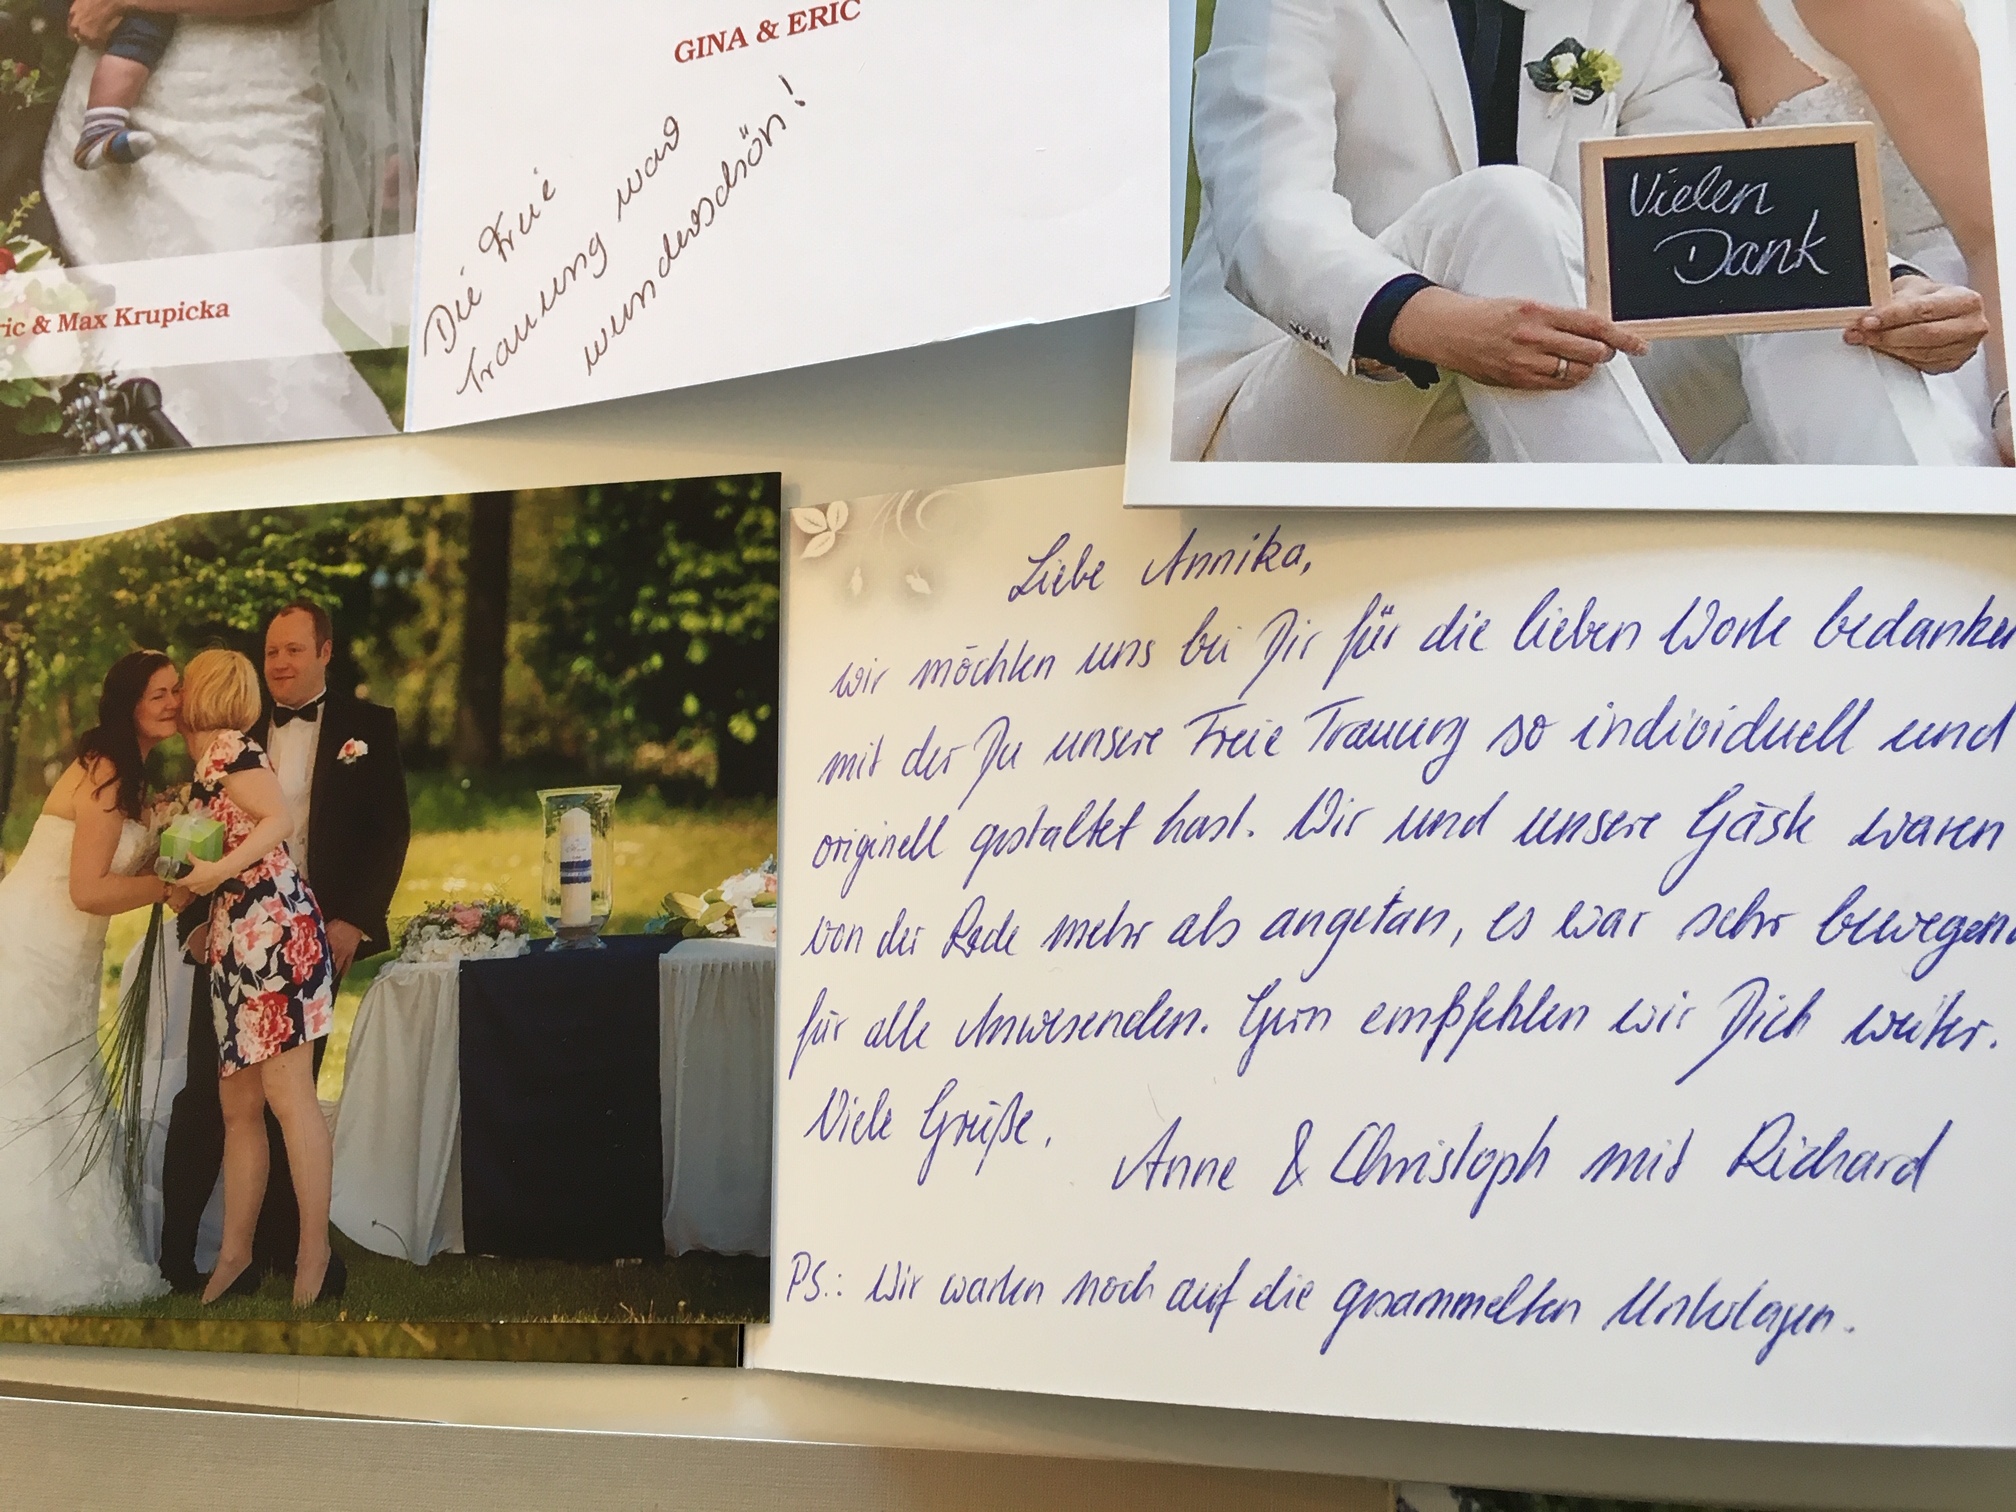 GINA & ERIC
Die Freie
Trauung war
wunderschön!
ric & Max Krupicka
Vielen
Dank
Liebe Annika,
wir möchten uns bei Dir für die lieben Worte bedanken
mit der Du unsere Freie Trauung so individuell und
originell gestaltet hast. Wir und unsere Gäste waren
von der Rede mehr als angetan, es war sehr bewegend
für alle Anwesenden. Gern empfehlen wir Dich weiter.
Viele Grüße,
Anne & Christoph mit Richard
PS.: Wir warten noch auf die gesammelten Unterlagen.